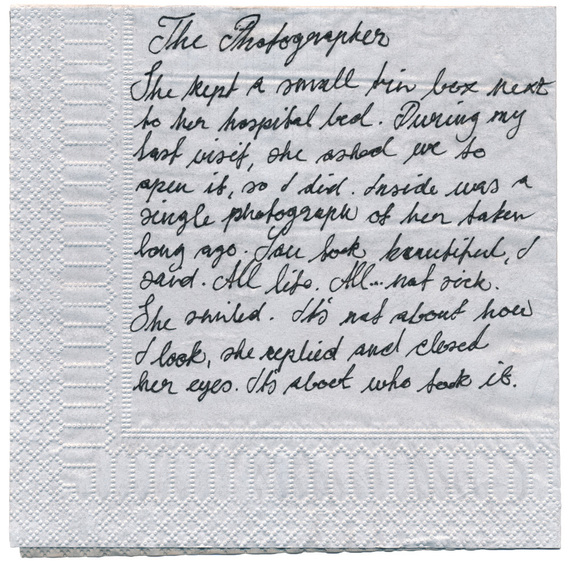 The Photographer
She kept a small tin box next
to her hospital bed. During my
last visit, she asked me to
open it, so I did. Inside was a
single photograph of her taken
long ago. You look beautiful, I
said. All life. All... not sick.
She smiled. It's not about how
I look, she replied and closed
her eyes. It's about who took it.